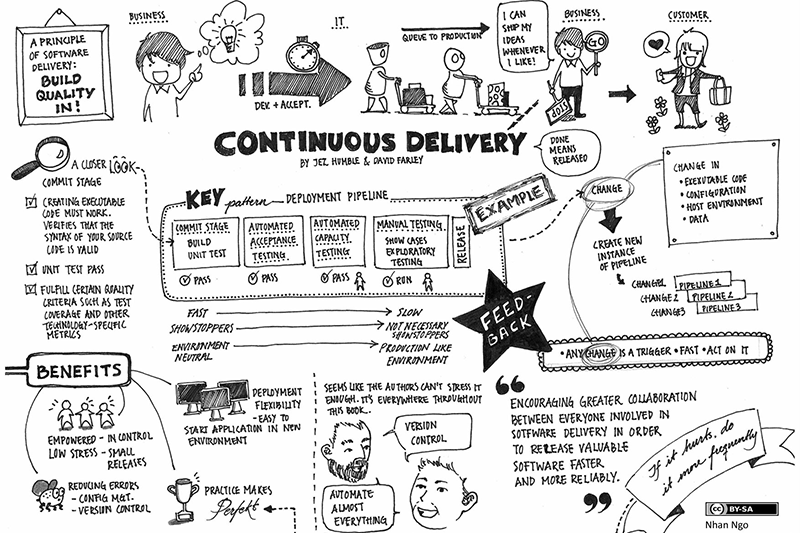 A PRINCIPLE
OF SOFTWARE
DELIVERY:
BUILD
QUALITY
IN!
BUSINESS
IT
DEV. + ACCEPT.
QUEUE TO PRODUCTION
I CAN
SHIP MY
IDEAS
WHENEVER
I LIKE!
BUSINESS
GO
STOP
CUSTOMER
CONTINUOUS DELIVERY
BY JEZ HUMBLE & DAVID FARLEY
DONE
MEANS
RELEASED
A CLOSER LOOK
COMMIT STAGE
CREATING EXECUTABLE
CODE MUST WORK.
VERIFIES THAT THE
SYNTAX OF YOUR SOURCE
CODE IS VALID
UNIT TEST PASS
FULFILL CERTAIN QUALITY
CRITERIA SUCH AS TEST
COVERAGE AND OTHER
TECHNOLOGY-SPECIFIC
METRICS
KEY pattern - DEPLOYMENT PIPELINE
COMMIT STAGE
BUILD
UNIT TEST
PASS
AUTOMATED
ACCEPTANCE
TESTING
PASS
AUTOMATED
CAPACITY
TESTING
PASS
MANUAL TESTING
SHOW CASES
EXPLORATORY
TESTING
RUN
RELEASE
EXAMPLE
FAST
SLOW
SHOWSTOPPERS
NOT NECESSARY
SHOWSTOPPERS
ENVIRONMENT
NEUTRAL
PRODUCTION LIKE
ENVIRONMENT
FEED-
BACK
CHANGE
CHANGE IN
• EXECUTABLE CODE
• CONFIGURATION
• HOST ENVIRONMENT
• DATA
CREATE NEW
INSTANCE
OF PIPELINE
CHANGE1 PIPELINE1
CHANGE2 PIPELINE2
CHANGE3 PIPELINE3
• ANY CHANGE IS A TRIGGER • FAST • ACT ON IT
BENEFITS
EMPOWERED - IN CONTROL
LOW STRESS - SMALL
RELEASES
REDUCING ERRORS
- CONFIG MGT.
- VERSION CONTROL
DEPLOYMENT
FLEXIBILITY
- EASY TO
START APPLICATION IN NEW
ENVIRONMENT
PRACTICE MAKES
Perfekt
SEEMS LIKE THE AUTHORS CAN'T STRESS IT
ENOUGH. IT'S EVERYWHERE THROUGHOUT
THIS BOOK..
VERSION
CONTROL
AUTOMATE
ALMOST
EVERYTHING
“
ENCOURAGING GREATER COLLABORATION
BETWEEN EVERYONE INVOLVED IN
SOFTWARE DELIVERY IN ORDER
TO RELEASE VALUABLE
SOFTWARE FASTER
AND MORE RELIABLY.
”
If it hurts, do
it more frequently
cc BY-SA
Nhan Ngo